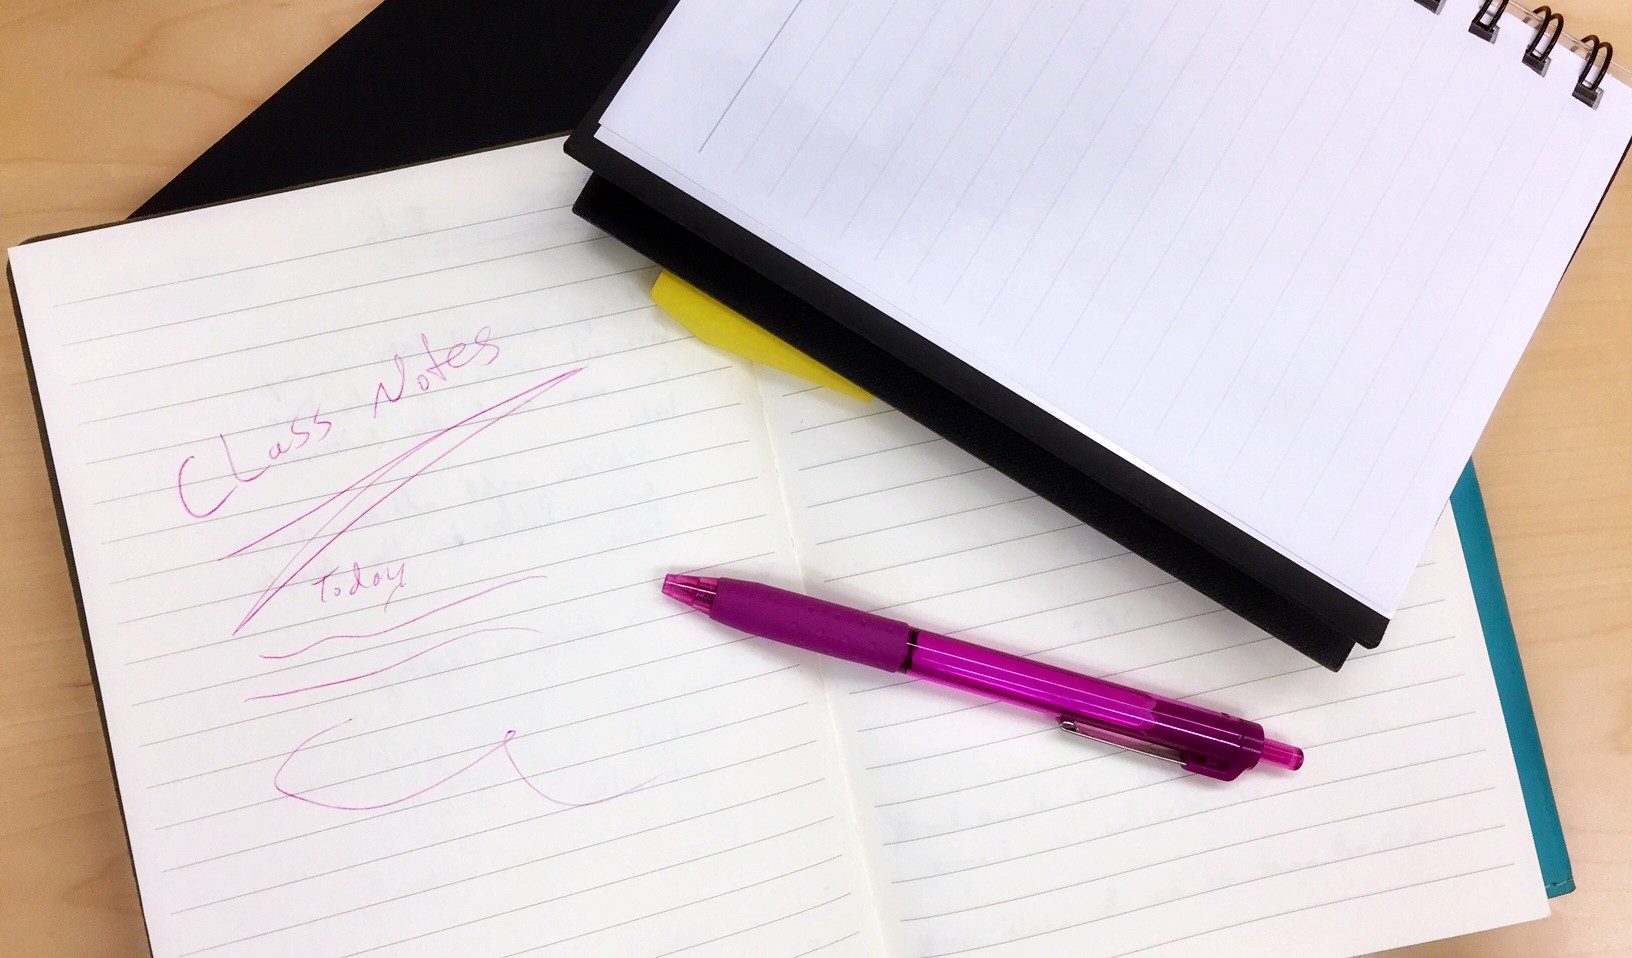 Class Notes
Today